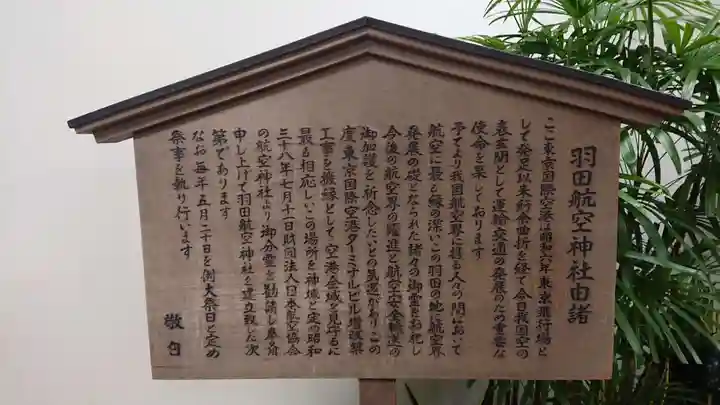 羽田航空神社由緒
ここ東京国際空港は昭和六年東京飛行場と
して発足以来紆余曲折を経て今日我国空の
表玄関として運輸交通の発展のため重要な
使命を果しております
予てより我国航空界に携る人々の間において
航空に最も縁の深いこの羽田の地に航空界
発展の礎となられた諸々の御霊をお祀し
今後の航空界の躍進と航空安全輸送の
御加護を祈念したいとの気運がありこの
度東京国際空港ターミナルビル増改築
工事を機縁として空港全域を見守るに
最も相応しいこの場所を神域と定め昭和
三十八年七月十二日財団法人日本航空協会
の航空神社より御分霊を勧請し奉斎
申し上げて羽田航空神社を建立致した次
第であります
なお毎年五月二十日を例大祭日と定め
祭事を執り行います
敬白